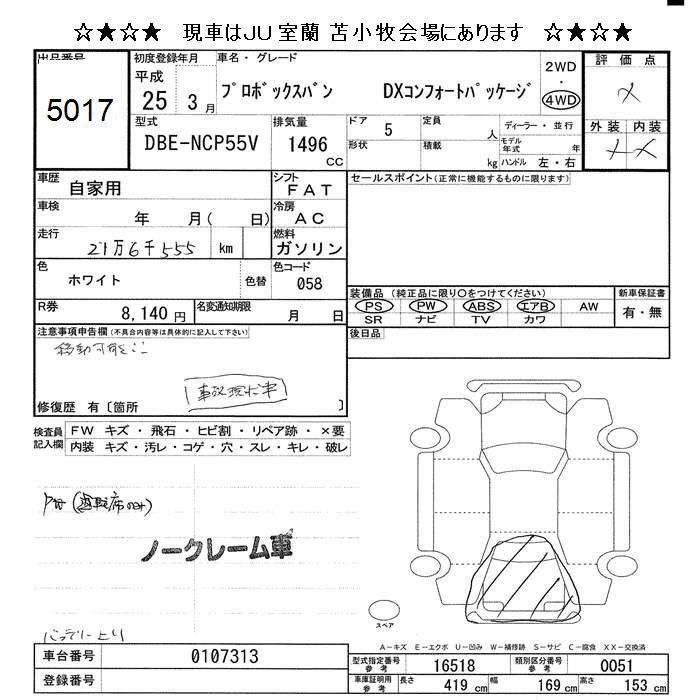 ☆★☆★ 現車はJU室蘭 苫小牧会場にあります ☆★☆★
出品番号
5017
初度登録年月
平成
25 3 月
車名・グレード
プロボックスバン DXコンフォートパッケージ
2WD
・
4WD
評価点
外装 内装
型式
DBE-NCP55V
排気量
1496
CC
ドア 5
形状
定員 人
積載 kg
ディーラー・並行
モデル年式 年
ハンドル 左・右
車歴
自家用
シフト
FAT
車検
年 月( 日)
冷房
AC
走行
21万6千555 km
燃料
ガソリン
色
ホワイト
色替
色コード
058
R券
8,140 円
名変通知期限
月 日
セールスポイント(正常に機能するものに限ります)
装備品 (純正品に限り○をつけてください)
PS PW ABS エアB AW
SR ナビ TV カワ
新車保証書
有・無
後日品
注意事項申告欄(不具合内容等は具体的に記入して下さい)
移動可能
事故現状車
修復歴 有〔箇所 〕
検査員記入欄
FW キズ・飛石・ヒビ割・リペア跡・×要
内装 キズ・汚レ・コゲ・穴・スレ・キレ・破レ
(運転席のみ)
ノークレーム車
バッテリー上り
スペア
A-キズ E-エクボ U-凹み W-補修跡 S-サビ C-腐食 XX-交換済
車台番号 0107313
登録番号
型式指定番号参考 16518 類別区分番号参考 0051
車庫証明用参考 長さ 419 cm 幅 169 cm 高さ 153 cm